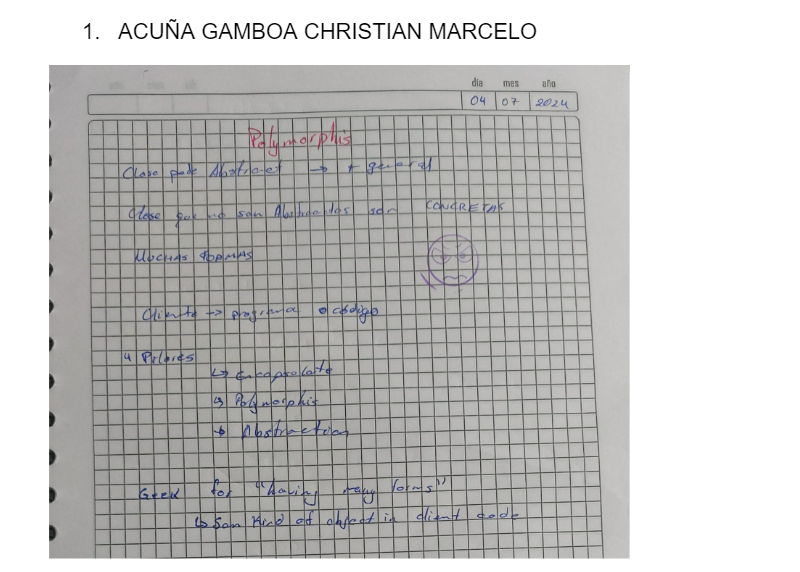 1. ACUÑA GAMBOA CHRISTIAN MARCELO
día mes año
04 07 2024
Polymorphis
Clase pade Abstract → + general
Clase que no son Abstractas son CONCRETAS
MUCHAS FORMAS
Cliente → programa o código
4 Pilares
↳ encapsolate
↳ Polymorphis
↳ Abstraction
Geek for "having many forms"
↳ Sam Kind of object in client code